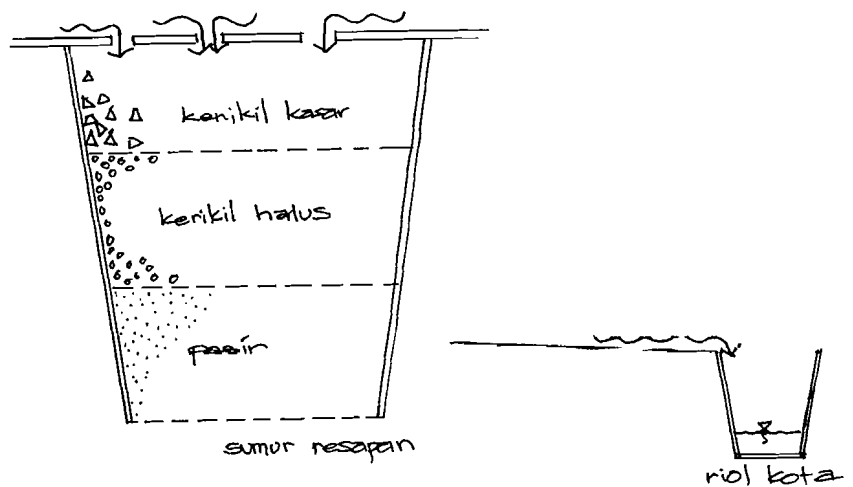 kerikil kasar
kerikil halus
pasir
sumur resapan
riol kota